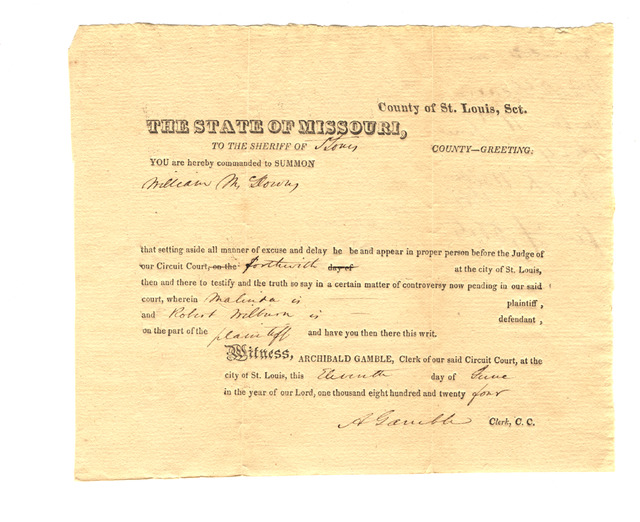 County of St. Louis, Sct.
THE STATE OF MISSOURI,
TO THE SHERIFF OF St Louis COUNTY—GREETING:
YOU are hereby commanded to SUMMON
William M Downs
that setting aside all manner of excuse and delay he be and appear in proper person before the Judge of
our Circuit Court, on the forthwith day of at the city of St. Louis,
then and there to testify and the truth to say in a certain matter of controversy now pending in our said
court, wherein Malinda is plaintiff,
and Robert Wilburn is defendant,
on the part of the plaintiff and have you then there this writ.
Witness, ARCHIBALD GAMBLE, Clerk of our said Circuit Court, at the
city of St. Louis, this Eleventh day of June
in the year of our Lord, one thousand eight hundred and twenty four
A Gamble Clerk, C. C.